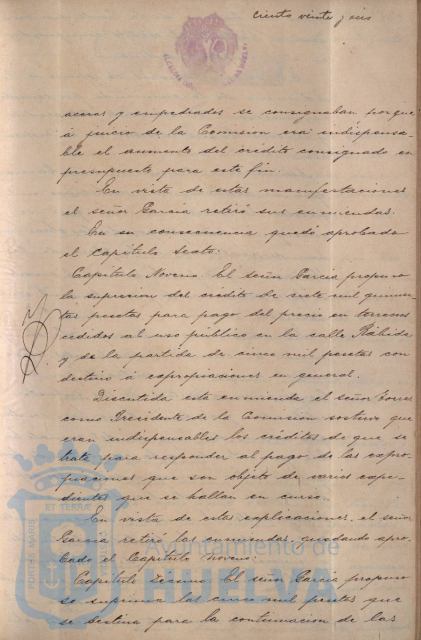 Ciento veinte y seis
aceras y empedrados se consignaban porque
á juicio de la Comision era indispensa-
ble el aumento del crédito consignado en
presupuesto para este fin.
En vista de estas manifestaciones
el señor Garcia retiró sus enmiendas.
En su consecuencia quedó aprobado
el Capítulo Sesto.
Capítulo Noveno. El señor Garcia propuso
la supresion del crédito de siete mil quinien-
tas pesetas para pago del precio en terrenos
cedidos al uso público en la calle Rábida
y de la partida de cinco mil pesetas con
destino á expropiaciones en general.
Discutida esta enmienda el señor Torres
como Presidente de la Comision sostuvo que
eran indispensables los créditos de que se
trata para responder al pago de las expro-
piaciones que son objeto de varios expe-
dientes que se hallan en curso.
En vista de estas explicaciones, el señor
Garcia retiró las enmiendas, quedando apro-
bado el Capítulo noveno.
Capítulo Decimo. El señor Garcia propuso
se suprima las cinco mil pesetas que
se destina para la continuacion de las
Ayuntamiento de
HUELVA
PORTUS MARIS
ET TERRÆ